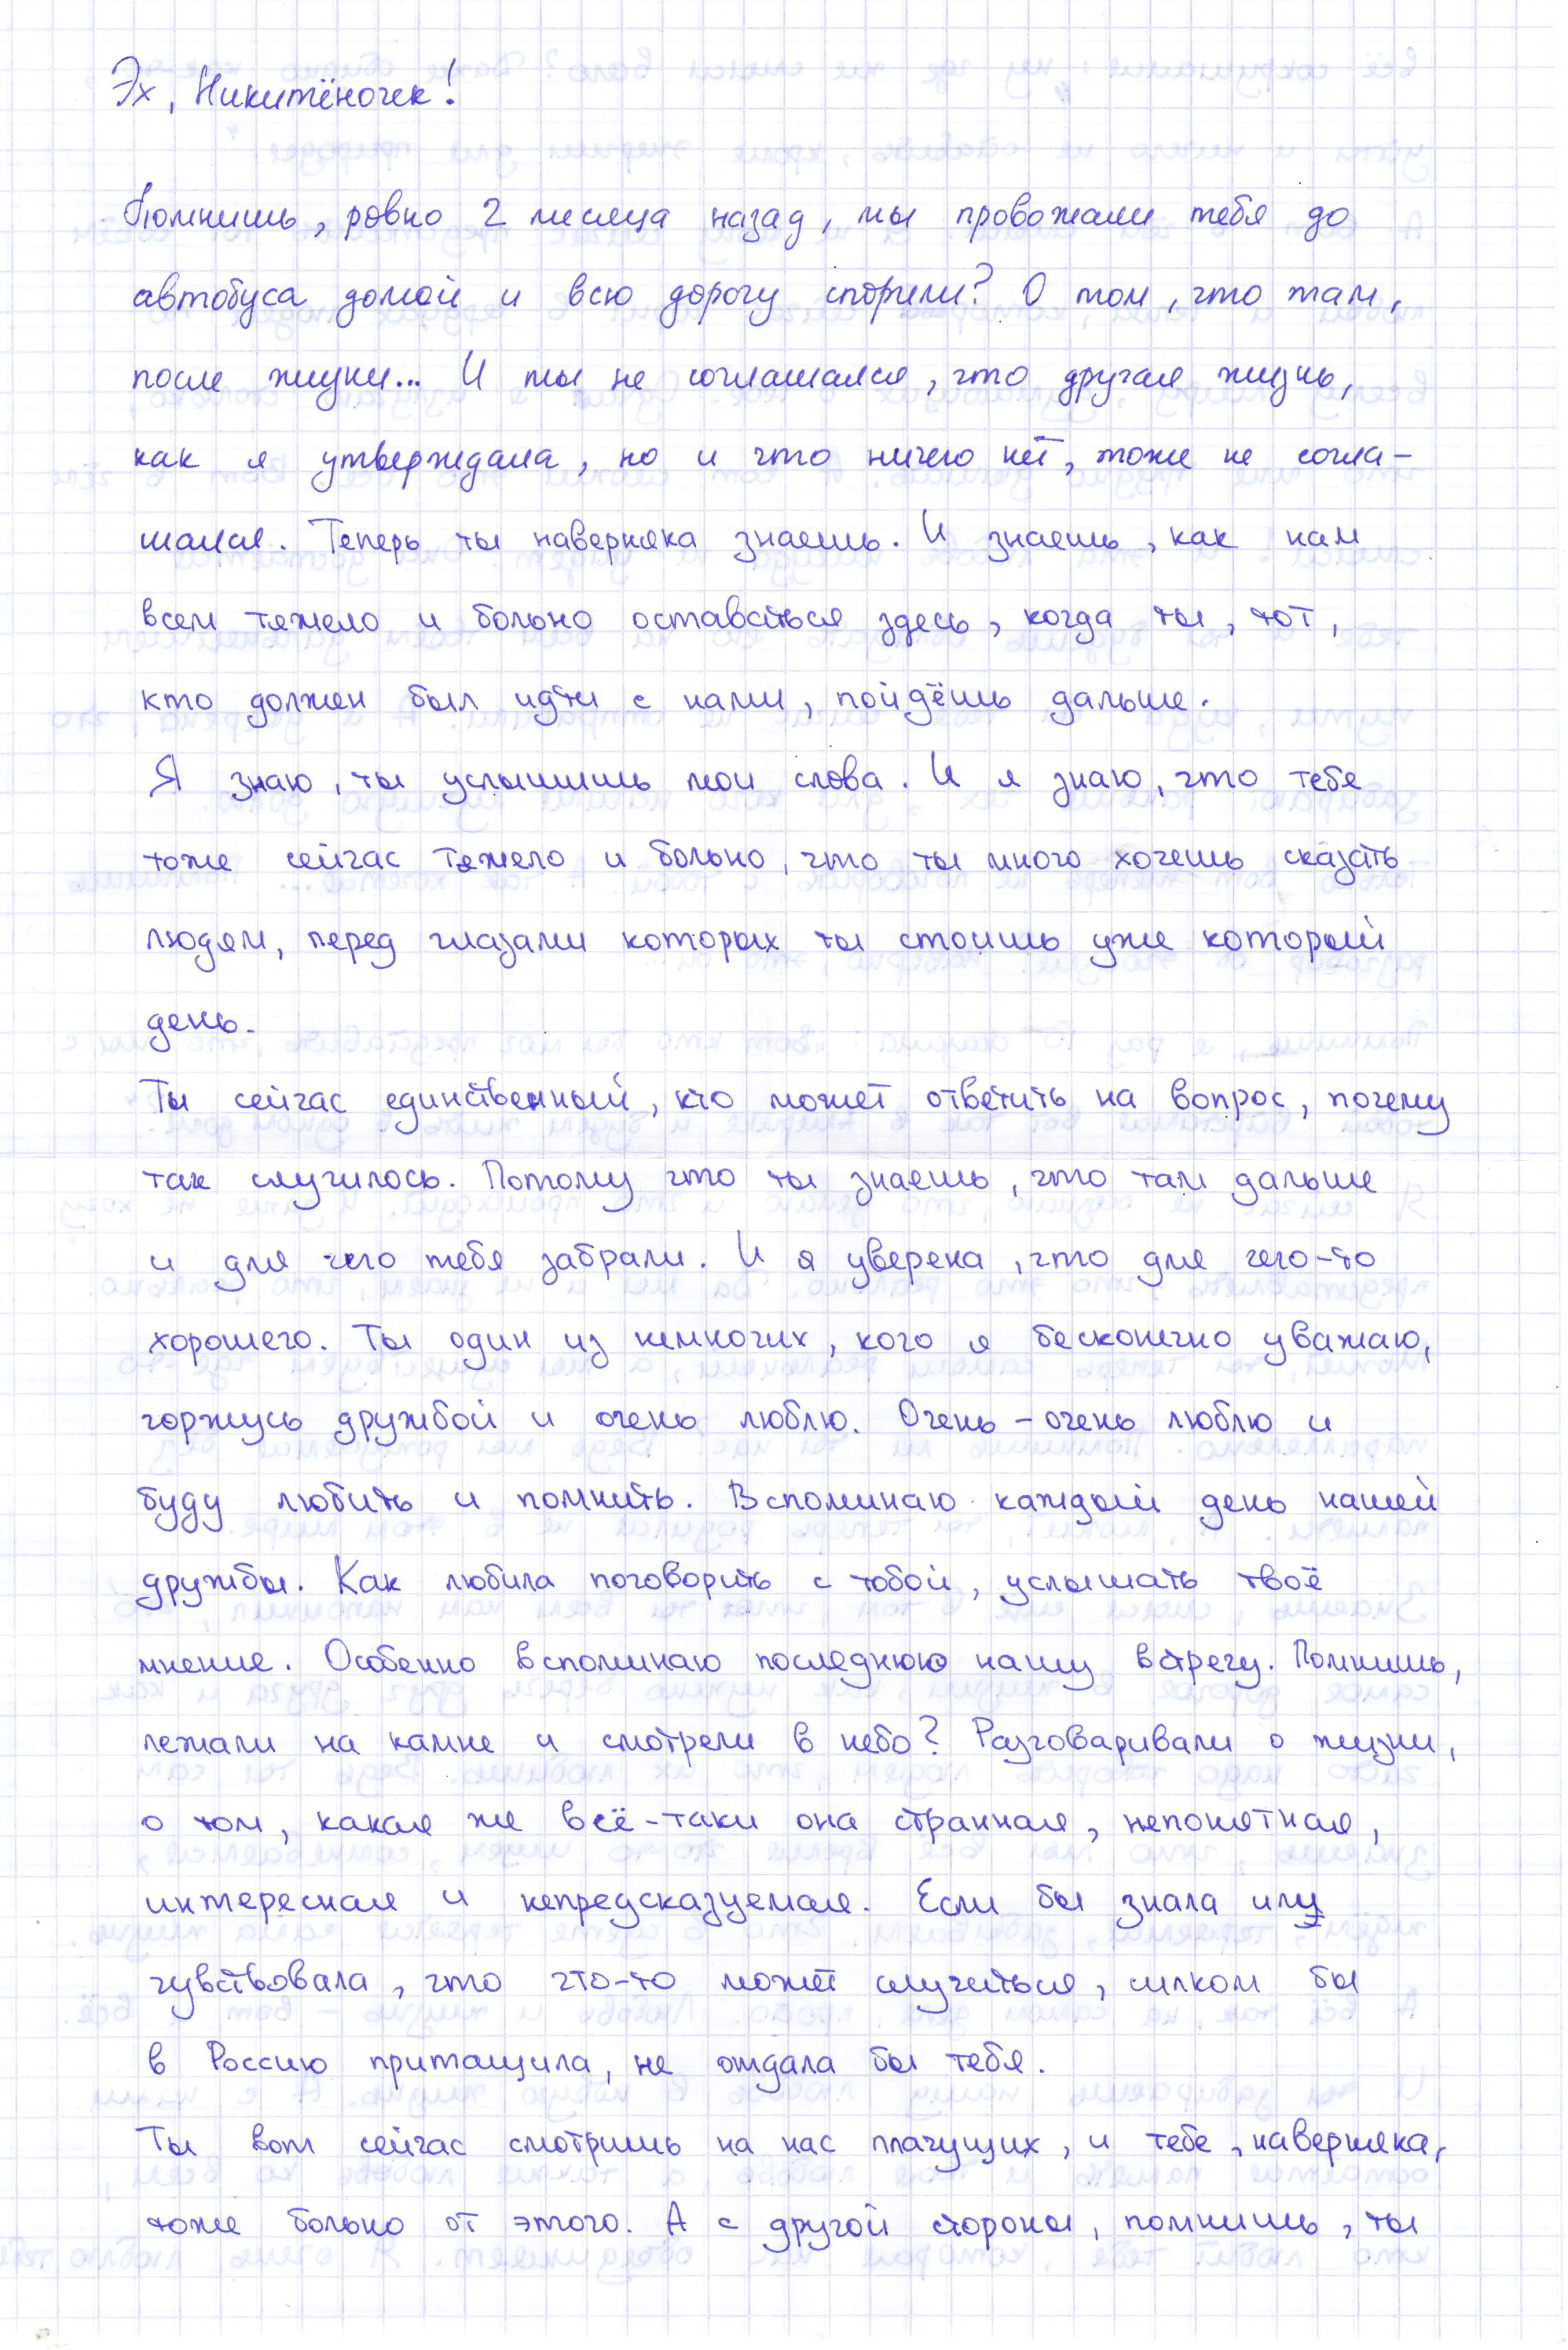 Эх, Никитёночек!
Помнишь, ровно 2 месяца назад, мы провожали тебя до
автобуса домой и всю дорогу спорили? О том, что там,
после жизни... И ты не соглашался, что другая жизнь,
как я утверждала, но и что ничего нет, тоже не согла-
шался. Теперь ты наверняка знаешь. И знаешь, как нам
всем тяжело и больно оставаться здесь, когда ты, тот,
кто должен был идти с нами, пойдёшь дальше.
Я знаю, ты услышишь мои слова. И я знаю, что тебе
тоже сейчас тяжело и больно, что ты много хочешь сказать
людям, перед глазами которых ты стоишь уже который
день.
Ты сейчас единственный, кто может ответить на вопрос, почему
так случилось. Потому что ты знаешь, что там дальше
и для чего тебя забрали. И я уверена, что для чего-то
хорошего. Ты один из немногих, кого я бесконечно уважаю,
горжусь дружбой и очень люблю. Очень-очень люблю и
буду любить и помнить. Вспоминаю каждый день нашей
дружбы. Как любила поговорить с тобой, услышать твоё
мнение. Особенно вспоминаю последнюю нашу встречу. Помнишь,
лежали на камне и смотрели в небо? Разговаривали о жизни,
о том, какая же всё-таки она странная, непонятная,
интересная и непредсказуемая. Если бы знала или
чувствовала, что что-то может случиться, силком бы
в Россию притащила, не отдала бы тебя.
Ты вот сейчас смотришь на нас плачущих, и тебе, наверняка,
тоже больно от этого. А с другой стороны, помнишь, ты